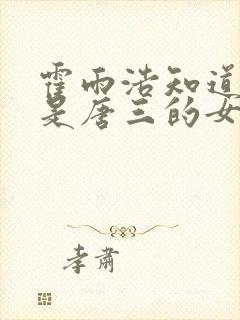 霍雨浩知道
是唐三的女
李肃